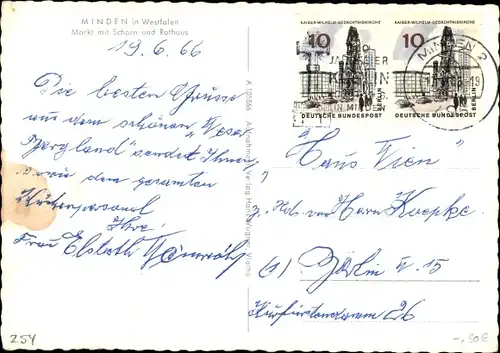 MINDEN in Westfalen
Markt mit Scharn und Rathaus
19.6.66
Die besten Grüsse
aus dem schönen „Weser
Bergland" sendet Ihnen
sowie dem gesamten
Küchenpersonal
Ihre
Frau Elsbeth
254
KAISER-WILHELM-GEDÄCHTNISKIRCHE
10
BERLIN
DEUTSCHE BUNDESPOST
KAISER-WILHELM-GEDÄCHTNISKIRCHE
10
BERLIN
DEUTSCHE BUNDESPOST
MINDEN 2
„Haus Wien"
z. Hd. von Herrn Koepke
(1) Berlin W. 15
Kurfürstendamm 26
-,30€